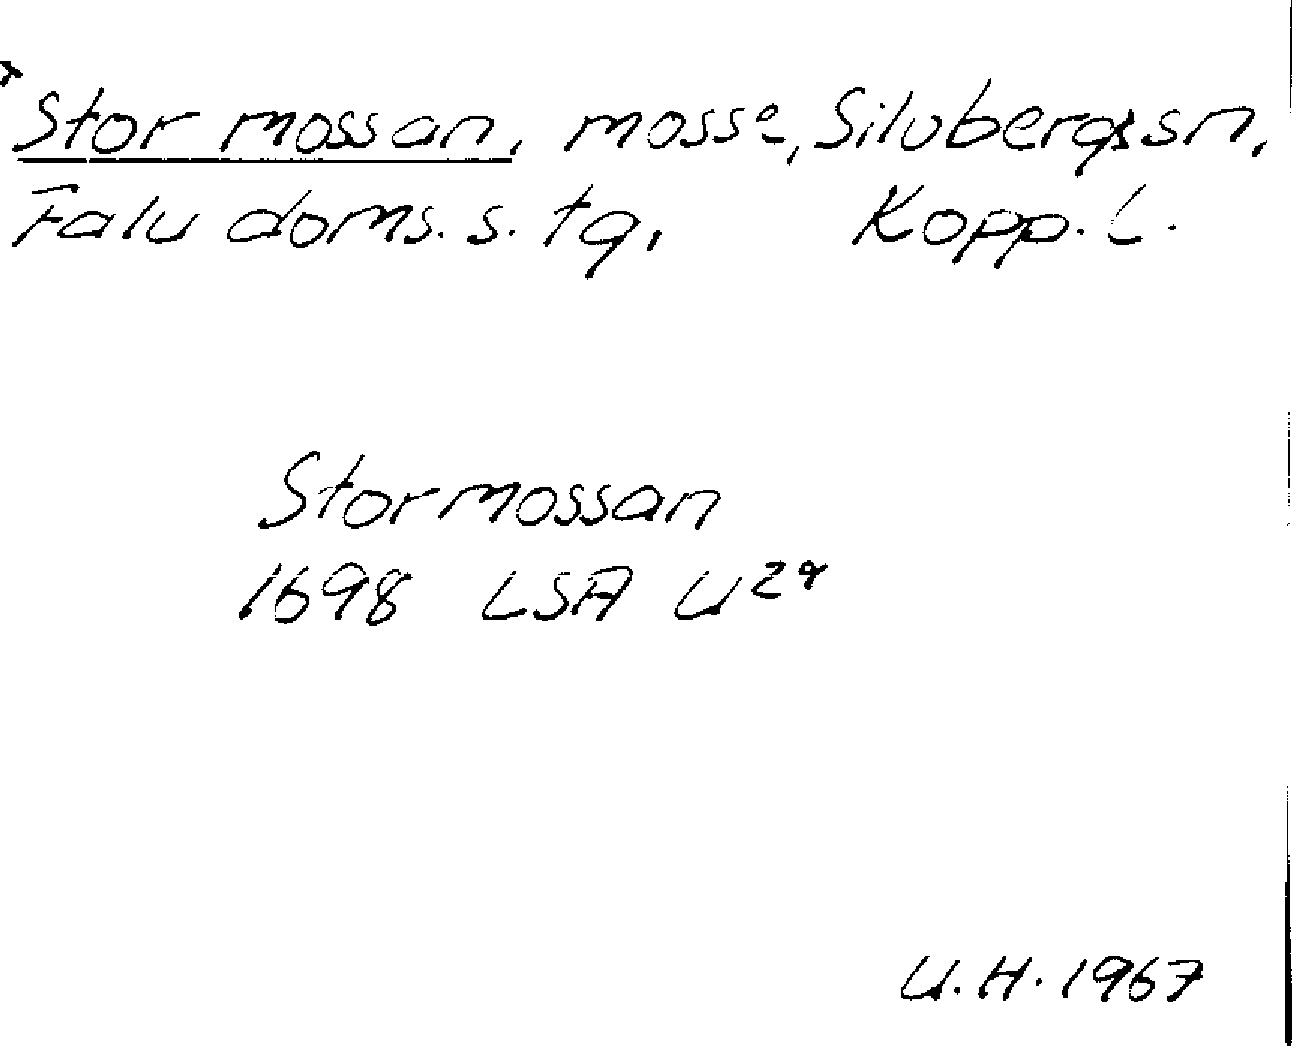 Stor mossan, mosse, Silvbergs sn,
Falu doms. s. tg, Kopp. L.
Stormossan
1698 LSA U 29
U.H. 1967